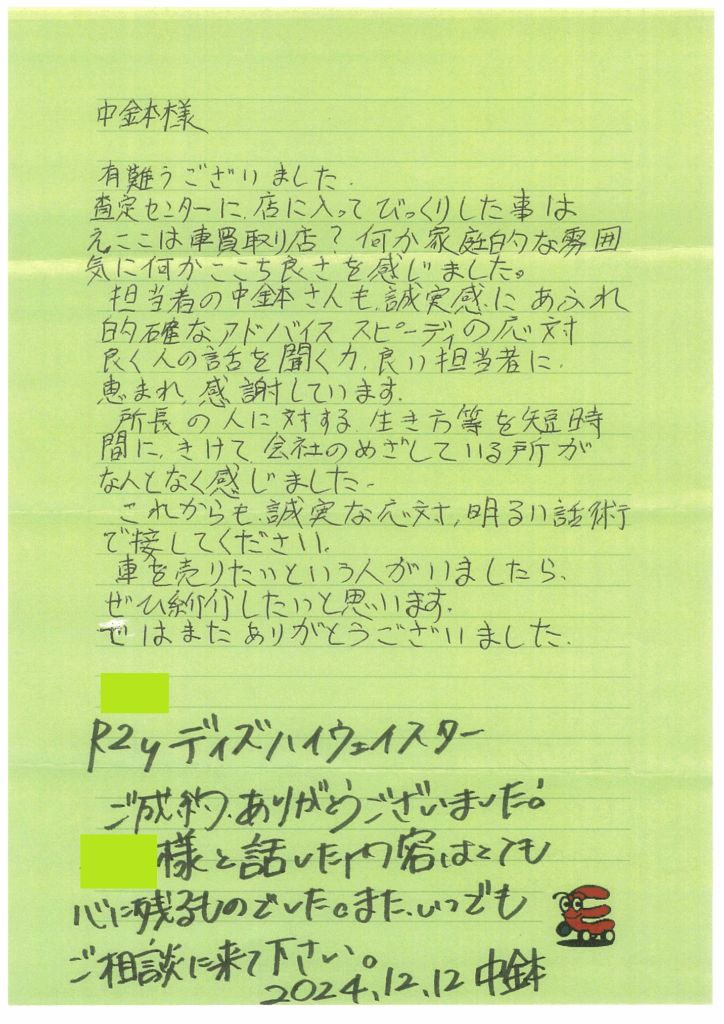 中金本様
有難うございました.
査定センターに、店に入ってびっくりした事は
え、ここは車買取り店？何か家庭的な雰囲
気に何かここち良さを感じました。
担当者の中金本さんも、誠実感にあふれ
的確なアドバイス スピーディの応対
良く人の話を聞く力、良い担当者に、
恵まれ、感謝しています.
所長の人に対する生き方等を短時
間に、きけて会社のめざしている所が
なんとなく感じました.
これからも、誠実な応対,明るい話術
で接してください.
車を売りたいという人がいましたら、
ぜひ紹介したいと思います.
ではまたありがとうございました.
R2y デイズハイウェイスター
ご成約、ありがとうございました!
様と話した内容はとても
心に残るものでした。また、いつでも
ご相談に来て下さい。
2024,12,12 中金本